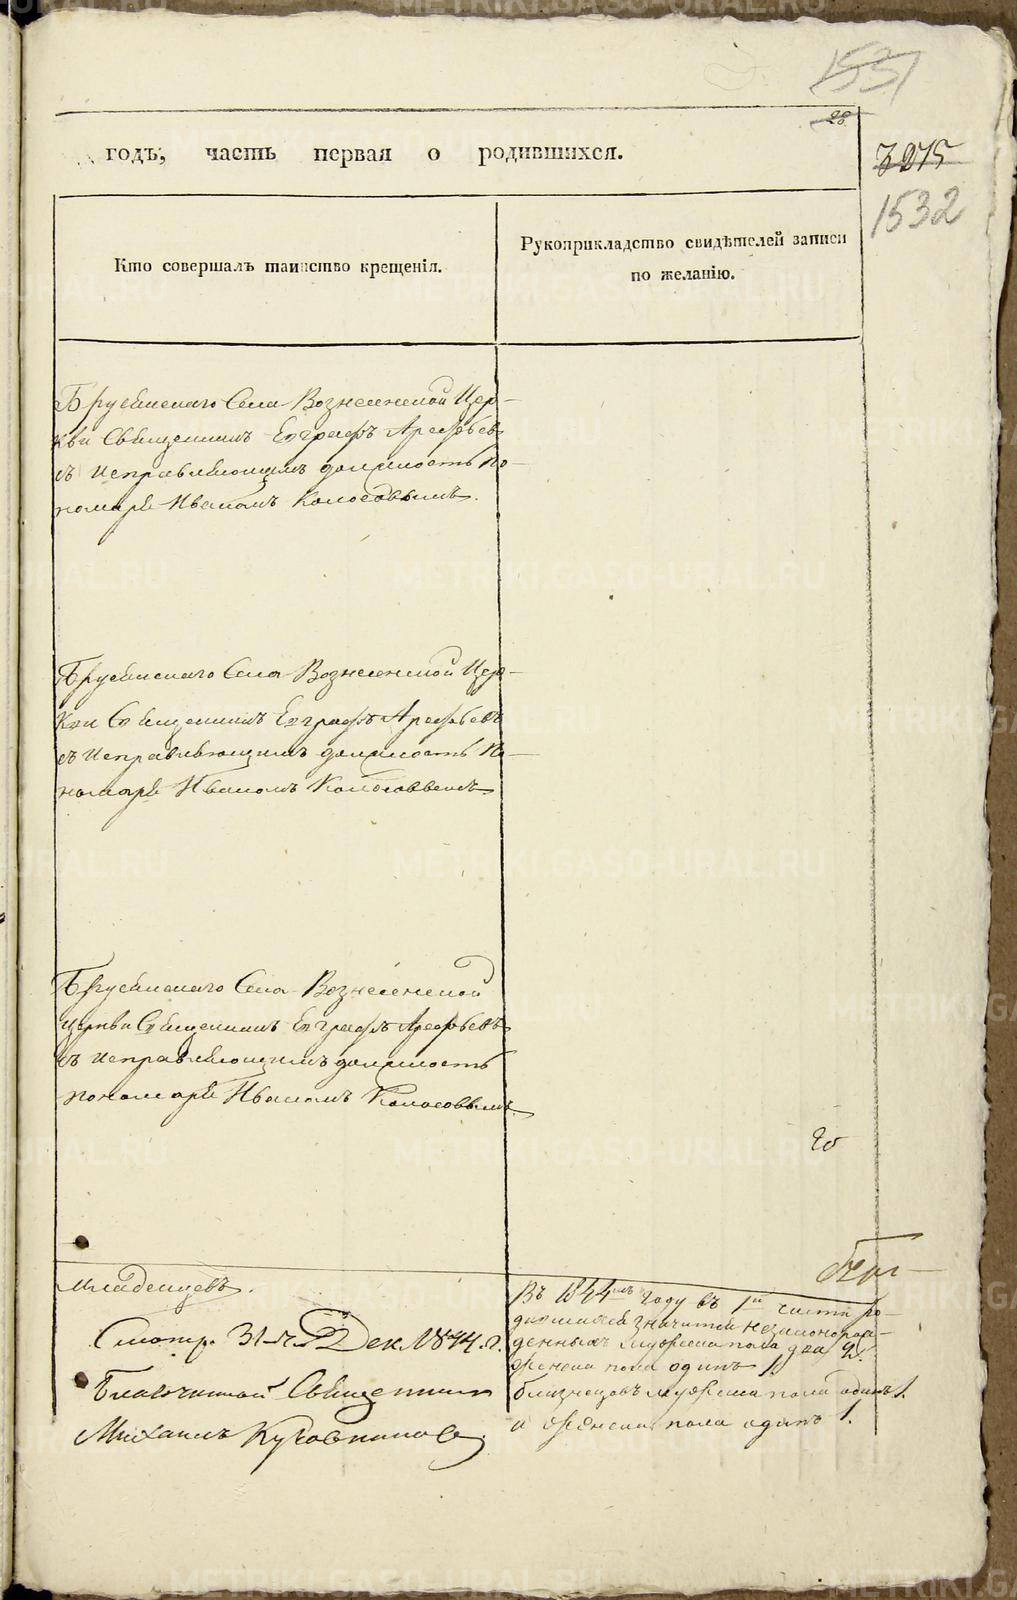 1531
28.
годъ, часть первая о родившихся.
3275
1532
Кто совершалъ таинство крещенія.
Рукоприкладство свидѣтелей записи
по желанію.
Брусянскаго Села Вознесенской Цер-
кви Священникъ Евграфъ Арефьевъ
съ исправляющимъ должность по-
номаря Иваномъ Колосовымъ.
Брусянскаго Села Вознесенской Цер-
кви Священникъ Евграфъ Арефьевъ
съ исправляющимъ должность по-
номаря Иваномъ Колосовымъ
Брусянскаго Села Вознесенской
церкви Священникъ Евграфъ Арефьевъ
съ исправляющимъ должность
пономаря Иваномъ Колосовымъ
младенцевъ.
Смотр. 31-го Дек. 1844. г.
Благочинный Священникъ
Михаилъ
Въ 1844мъ году въ 1й части ро-
дившихся значится незаконорож-
денныхъ мужеска пола два 2.
женска пола одинъ 1
близнецовъ мужеска пола одинъ 1.
и женска пола одинъ 1.
METRIKI.GASO-URAL.RU